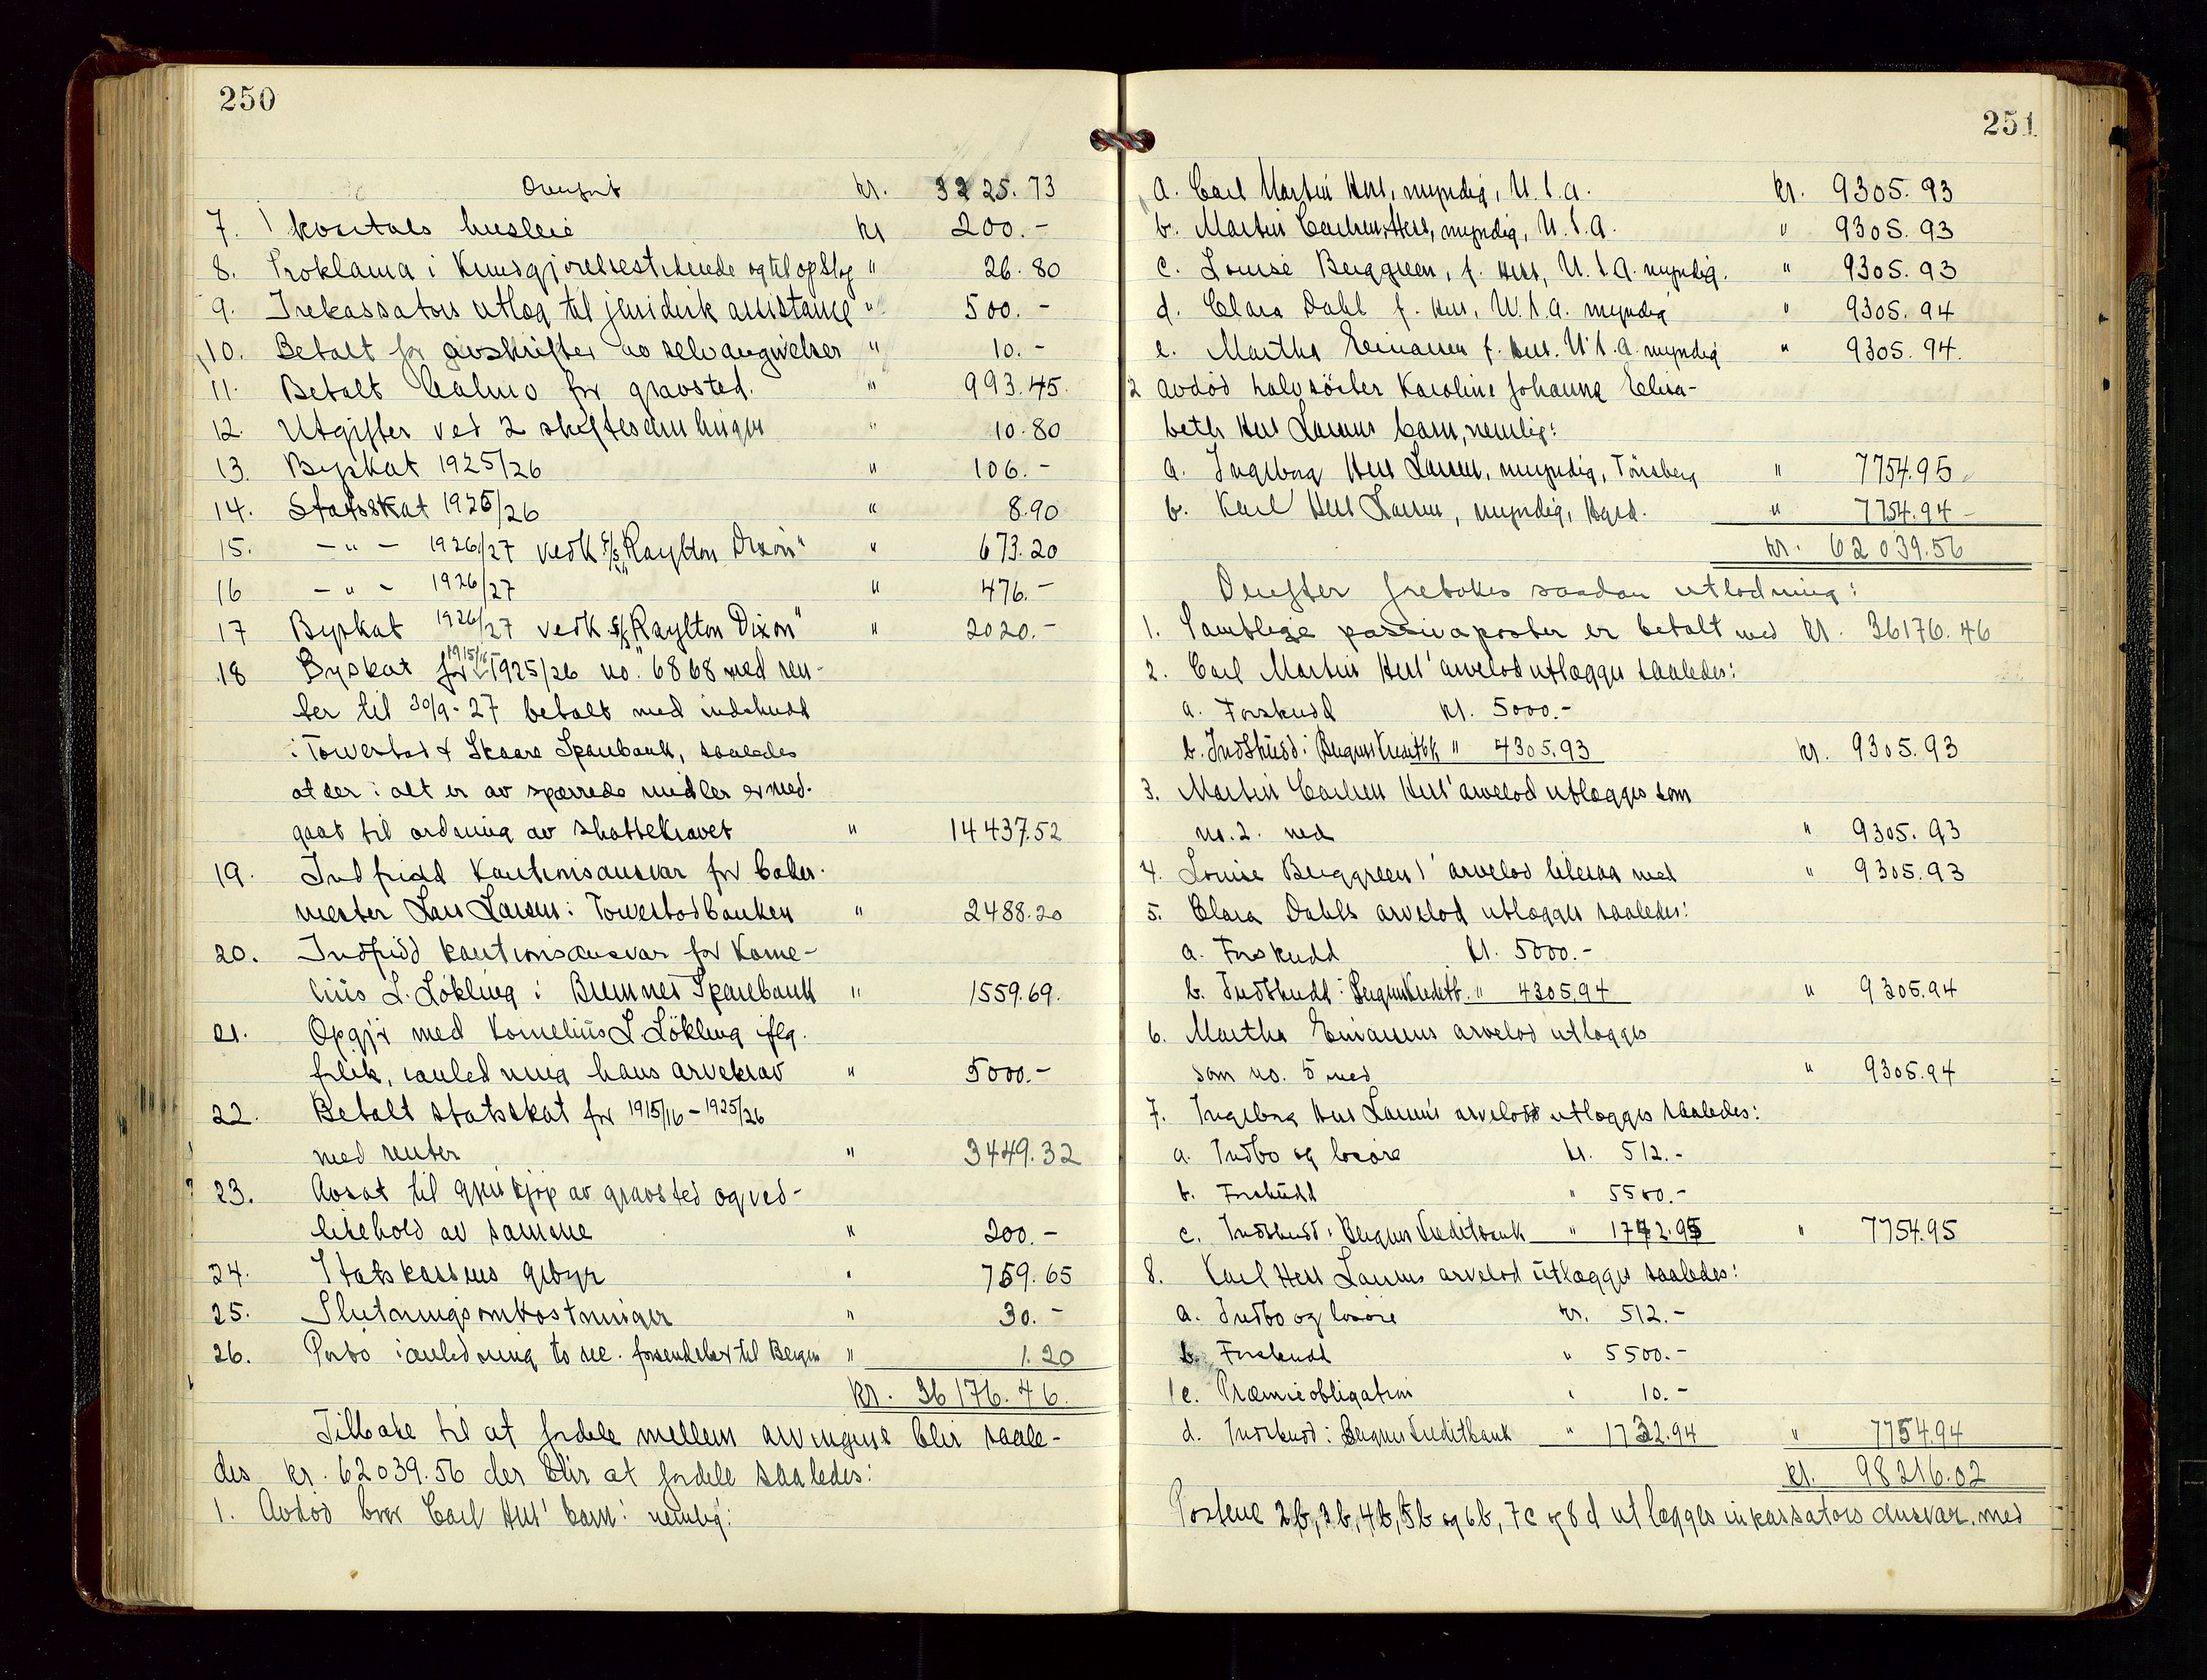 250
Overført kr. 3225.73
7. 1 kvartals husleie kr 200.-
8. Proklama i Kundgjørelsestidende og til opslag " 26.80
9. Inkassators utlæg til juridisk assistance " 500.-
10. Betalt for avskrifter av selvangivelser " 10.-
11. Betalt for gravsted. " 993.45
12. Utgifter ved 2 skiftesamlinger " 10.80
13. Byskat 1925/26 " 106.-
14. Statsskat 1925/26 " 8.90
15. -"- 1926/27 vedk. S/S "Raylton Dixon" " 673.20
16 -"- 1926/27 " 476.-
17 Byskat 1926/27 vedk. S/S "Raylton Dixon" " 2020.-
18 Byskat for 1915/16-1925/26 no. 6868 med ren-
ter til 30/9-27 betalt med indskudd
i Torvestad & Skaare Sparebank, saaledes
at der i alt er av sperrede midler er med-
gaat til ordning av skattekravet " 14437.52
19. Indfridd kautionsansvar for baker-
mester Lars Larsen i Torvestadbanken " 2488.20
20. Indfridd kautionsansvar for Korne-
lius L. Løkling i Bremnes Sparebank " 1559.69.
21. Opgjør med Kornelius L. Løkling iflg.
forlik, i anledning hans arvekrav " 5000.-
22. Betalt statsskat for 1915/16-1925/26
med renter " 3449.32
23. Avsat til gjenkjøp av gravsted og ved-
likehold av samme " 200.-
24. Statskassens gebyr " 759.65
25. Slutningsomkostninger " 30.-
26. Porto i anledning to rec. forsendelser til Bergen " 1.20
kr. 36176.46.
Tilbake til at fordele mellem arvingene blir saale-
des kr. 62039.56 der blir at fordele saaledes:
1. Avdød bror Carl Hess' barn: nemlig:
251
a. Carl Martin Hess, myndig, U.S.A. kr. 9305.93
b. Martin Carlsen Hess, myndig, U.S.A. " 9305.93
c. Louise Berggreen, f. Hess, U.S.A. myndig. " 9305.93
d. Clara Dahl f. Hess, U.S.A. myndig " 9305.94
e. Martha Einarsen f. Hess. U.S.A. myndig " 9305.94.
2 avdød halvsøster Karoline Johanna Elisa-
beth Hess Larsens barn, nemlig:
a. Ingeborg Hess Larsen, myndig, Tönsberg " 7754.95
b. Karl Hess Larsen, myndig, Hgsd. " 7754.94-
kr. 62039.56
Derefter foretokes saadan utlodning:
1. Samtlige passivaposter er betalt med kr. 36176.46
2. Carl Martin Hess' arvelod utlægges saaledes:
a. Forskudd kr. 5000.-
b. Indskudd i Bergens Creditbk " 4305.93 kr. 9305.93
3. Martin Carlsen Hess' arvelod utlægges som
no. 2. med " 9305.93
4. Louise Berggreens' arvelod likesaa med " 9305.93
5. Clara Dahls arvelod utlægges saaledes:
a. Forskudd kr. 5000.-
b. Indskudd i Bergens Kreditb. " 4305.94 " 9305.94
6. Martha Einarsens arvelod utlægges
som no. 5 med " 9305.94
7. Ingeborg Hess Larsen's arvelodd utlægges saaledes:
a. Indbo og løsøre kr. 512.-
b. Forskudd " 5500.-
c. Indskudd i Bergens Creditbank " 1742.95 " 7754.95
8. Karl Hess Larsens arvelod utlægges saaledes:
a. Indbo og løsøre kr. 512.-
b. Forskudd " 5500.-
c. Præmieobligation " 10.-
d. Indskudd i Bergens Creditbank " 1732.94 " 7754.94
kr. 98216.02
Postene 2b, 3b, 4b, 5b og 6b, 7c og 8d utlægges inkassators ansvar, med